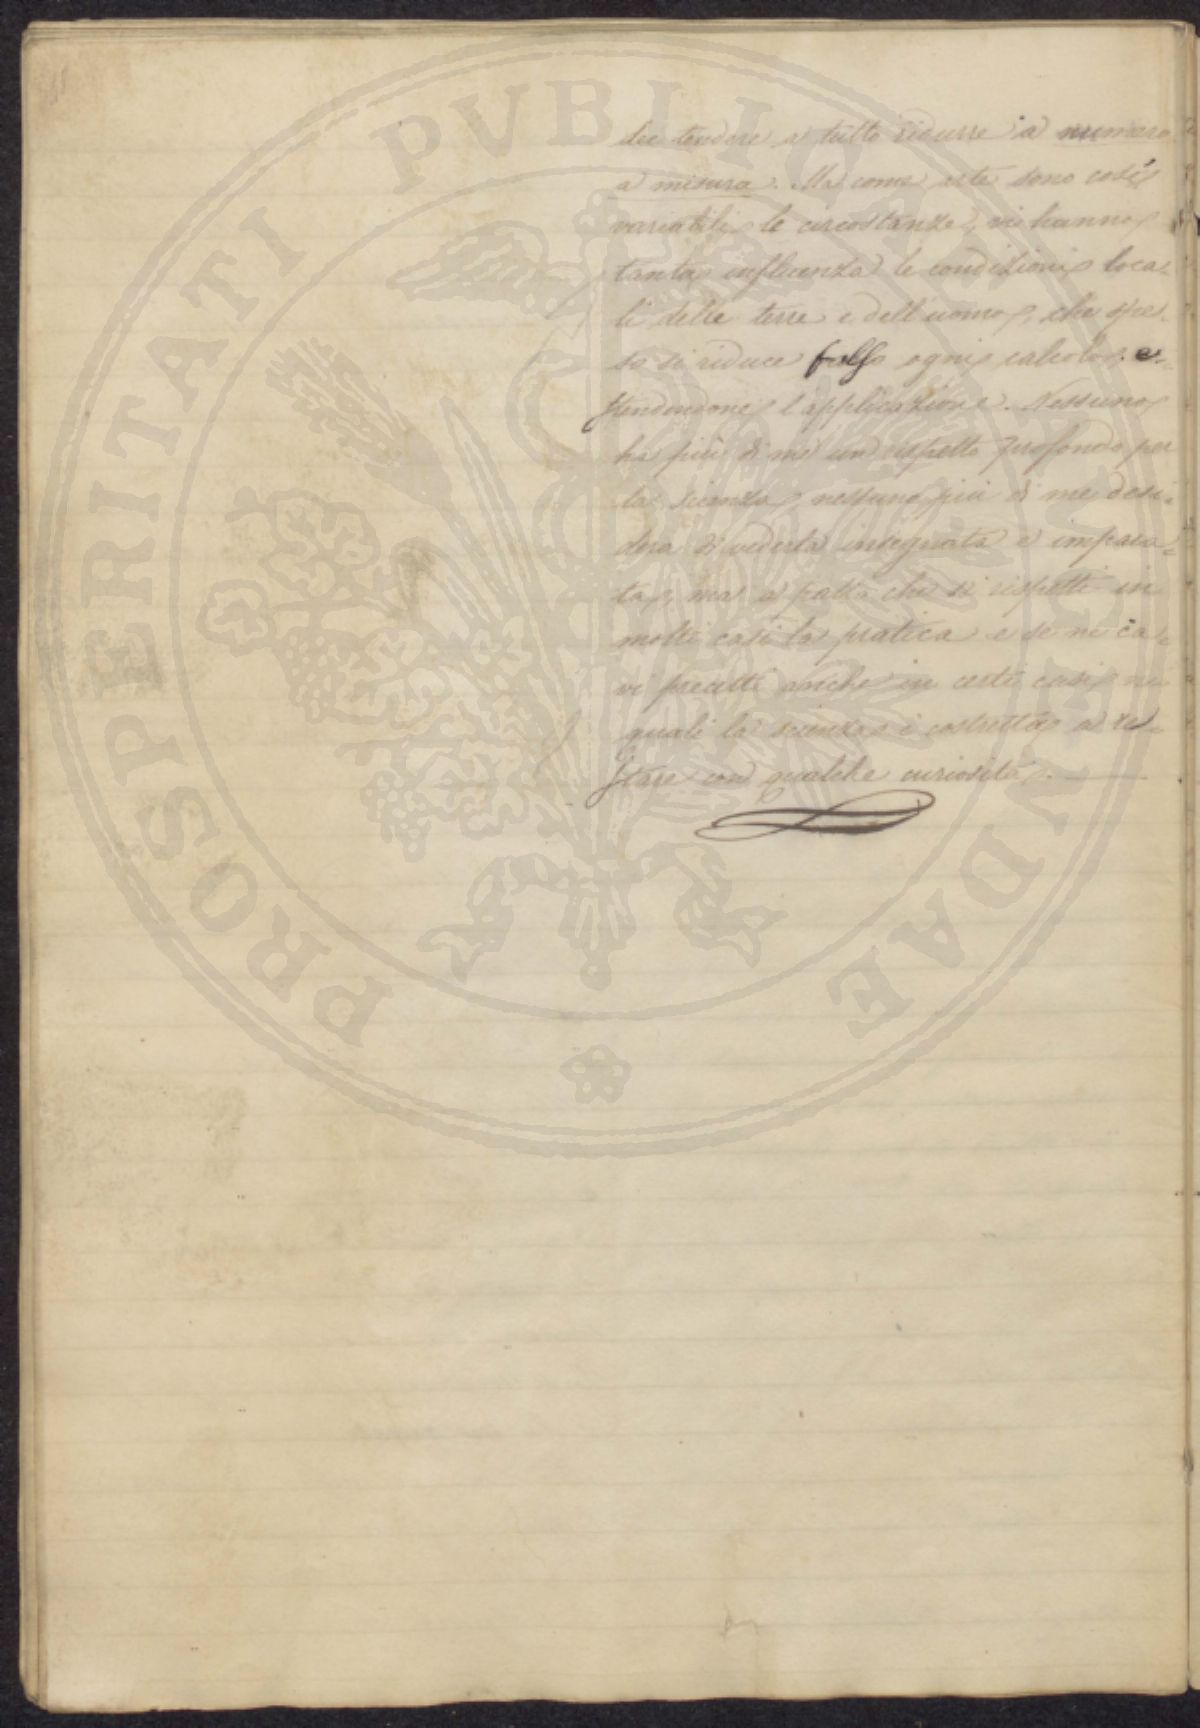 dee tendere a tutto ridurre a numero
a misura. Ma come arte sono così
variabili le circostanze, vi hanno
tanta influenza le condizioni loca-
li delle terre e dell'uomo, che spes-
so si riduce falso ogni calcolo e-
stendendone l'applicazione. Nessuno
ha più di me un rispetto profondo per
la scienza, nessuno più di me desi-
dera di vederla insegnata e impara-
ta, ma a patto che si rispetti in
molti casi la pratica e se ne ca-
vi precetti anche in certi casi ne
quali la scienza è costretta a re-
stare con qualche curiosità.
PROSPERITATI PVBLICAE AVGENDAE